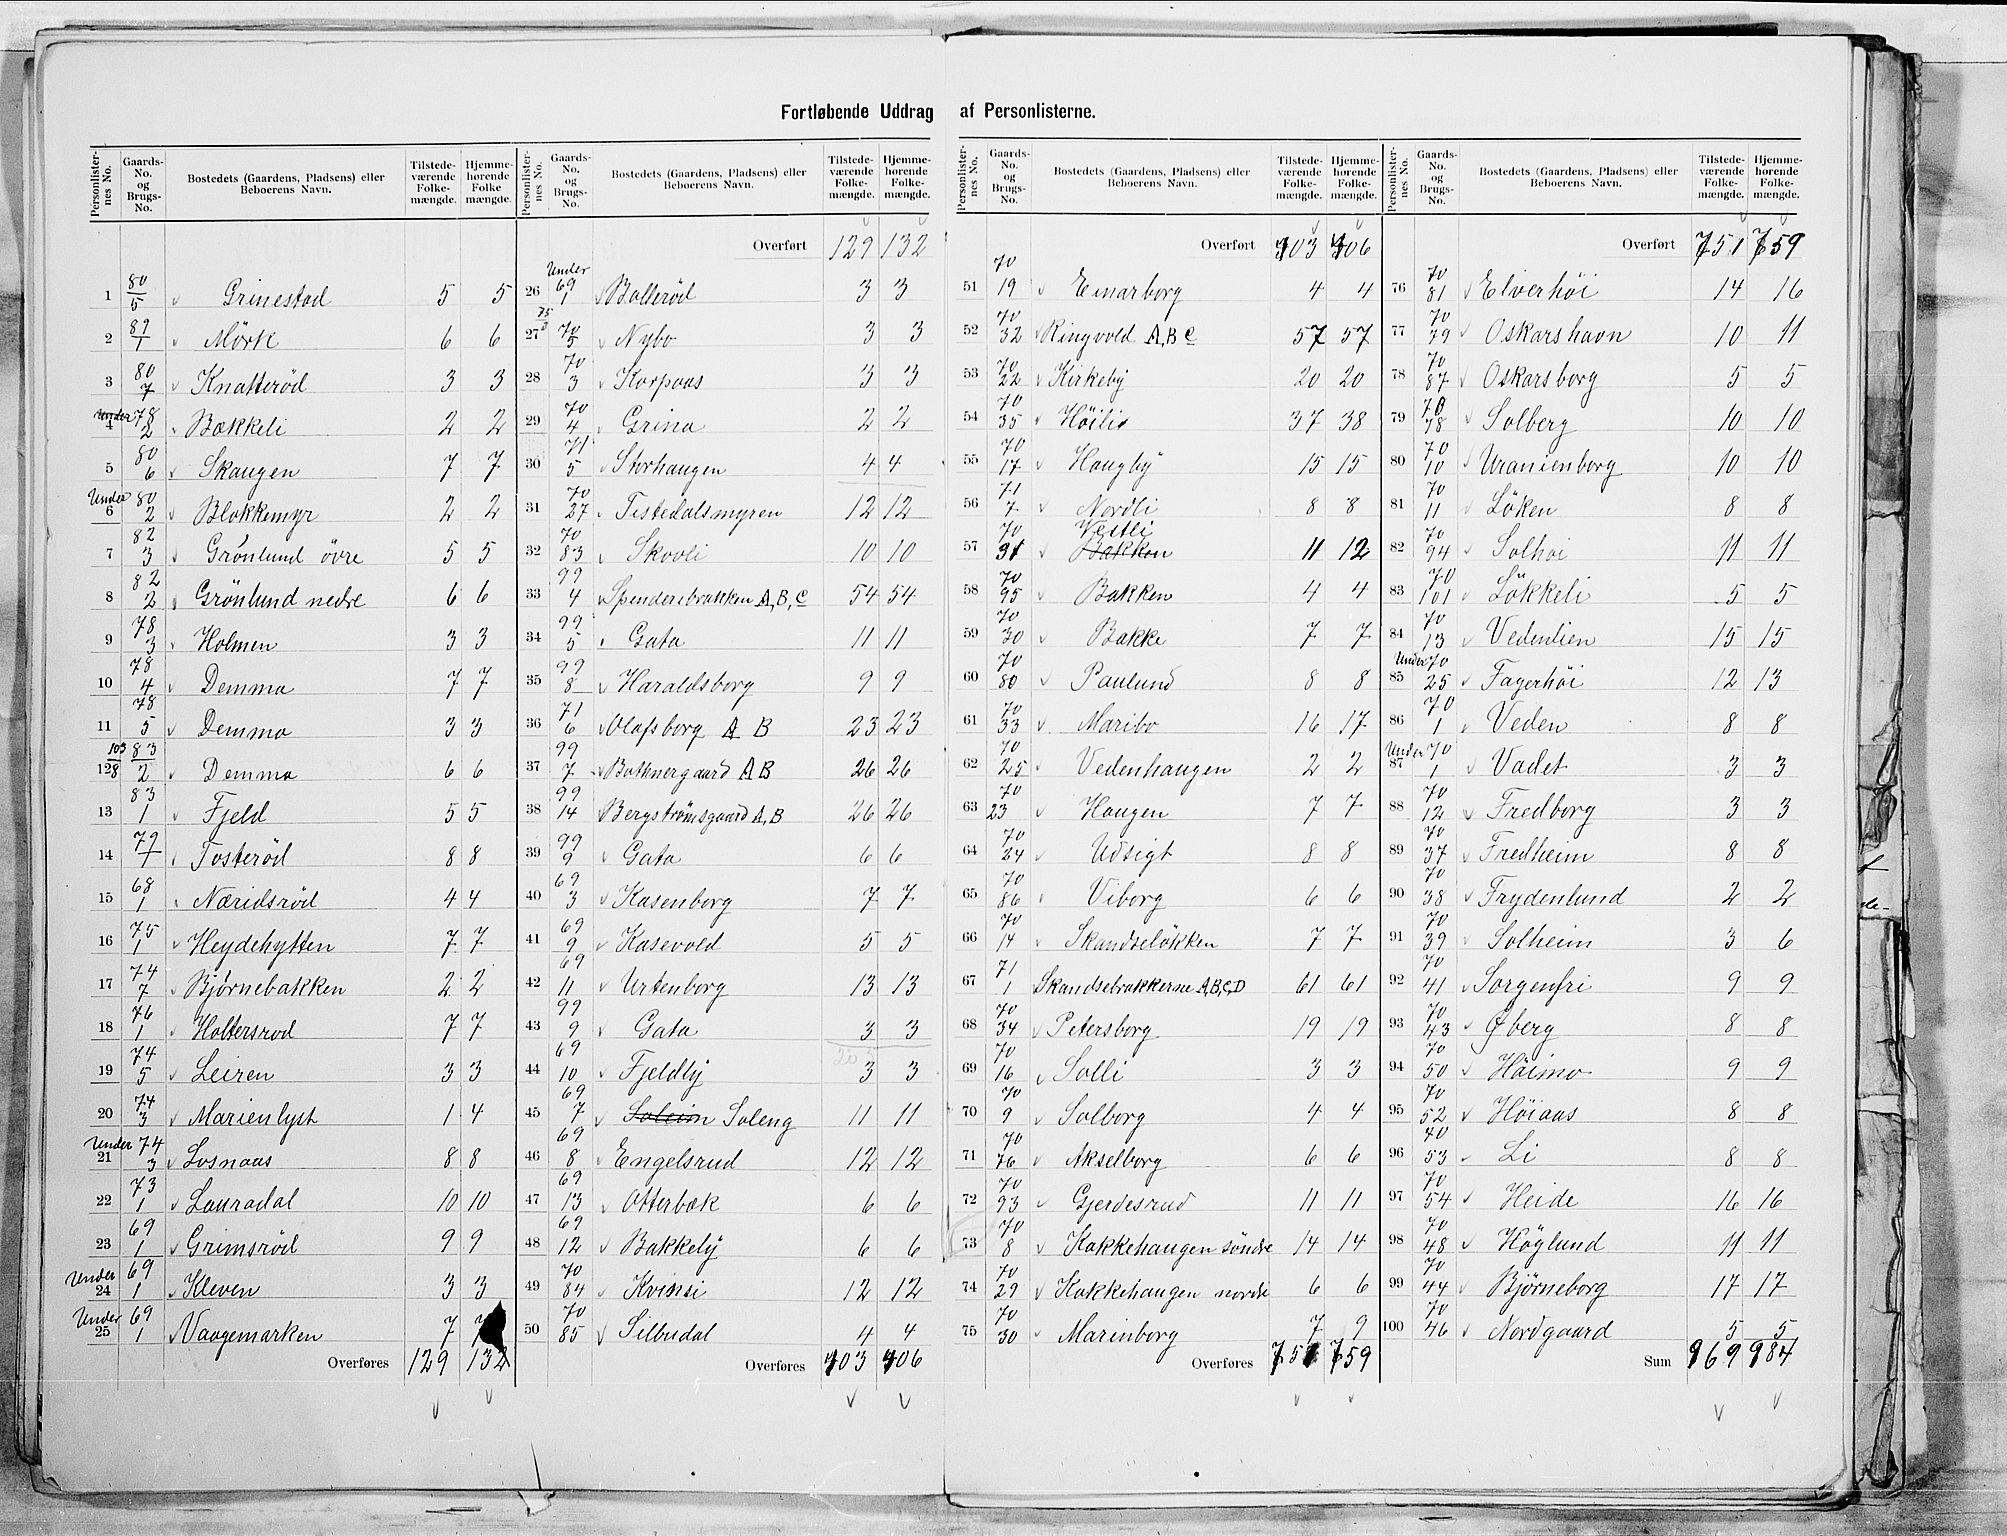 Fortløbende Uddrag af Personlisterne.
Personlisternes No. Gaards-No. og Brugs-No. Bostedets (Gaardens, Pladsens) eller Beboerens Navn. Tilstedeværende Folkemængde. Hjemmehørende Folkemængde.
1 80/5 Grinestad 5 5
2 89/1 Mörk 6 6
3 80/7 Knatteröd 3 3
4 Under 78/2 Bækkeli 2 2
5 80/6 Skaugen 7 7
6 Under 80/2 Blokkemyr 2 2
7 82/3 Grönlund övre 5 5
8 82/2 Grönlund nedre 6 6
9 78/3 Holmen 3 3
10 78/4 Demma 7 7
11 78/5 Demma 3 3
12 103/8 83/2 Demma 6 6
13 83/1 Fjeld 5 5
14 79/1 Tosteröd 8 8
15 68/1 Næridsröd 4 4
16 75/1 Heydehytten 7 7
17 74/7 Bjørnebakken 2 2
18 76/1 Holtersrod 7 7
19 74/5 Leiren 3 3
20 74/3 Marienlyst 1 4
21 Under 74/3 Losnaas 8 8
22 73/1 Lauradal 10 10
23 69/1 Grimsröd 9 9
24 Under 69/1 Kleven 3 3
25 Under 69/1 Vaagemarken 7 7
Overføres 129 132
Personlisternes No. Gaards-No. og Brugs-No. Bostedets (Gaardens, Pladsens) eller Beboerens Navn. Tilstedeværende Folkemængde. Hjemmehørende Folkemængde.
Overført 129 132
26 Under 69/1 Balleröd 3 3
27 70/5 Nybo 3 3
28 70/3 Korpaas 3 3
29 70/4 Grina 2 2
30 71/5 Storhaugen 4 4
31 70/27 Tistedalsmyren 12 12
32 70/83 Skovli 10 10
33 99/4 Spenderebrakken A, B, C 54 54
34 99/5 Gata 11 11
35 99/8 Haraldsborg 9 9
36 71/6 Olafsborg A B 23 23
37 99/7 Bothnergaard A B 26 26
38 99/14 Bergstrømsgaard A, B 26 26
39 99/9 Gata 6 6
40 69/3 Kasenborg 7 7
41 69/9 Kasevold 5 5
42 69/11 Urtenborg 13 13
43 99/9 Gata 3 3
44 69/10 Fjeldly 3 3
45 69/7 Soleim Soleng 11 11
46 69/8 Engelsrud 12 12
47 69/13 Otterbæk 6 6
48 69/12 Bakkely 6 6
49 70/84 Kvimsi 12 12
50 70/85 Silbudal 4 4
Overføres 403 406
Personlisternes No. Gaards-No. og Brugs-No. Bostedets (Gaardens, Pladsens) eller Beboerens Navn. Tilstedeværende Folkemængde. Hjemmehørende Folkemængde.
Overført 403 406
51 70/19 Emarborg 4 4
52 70/32 Ringvold A, B C 57 57
53 70/22 Kirkeby 20 20
54 70/35 Höili 37 38
55 70/17 Haugby 15 15
56 71/7 Nordli 8 8
57 70/91 Bakken Vestli 11 12
58 70/95 Bakken 4 4
59 70/30 Bakke 7 7
60 70/80 Paulund 8 8
61 70/33 Maribo 16 17
62 70/25 Vedenhaugen 2 2
63 70/23 Haugen 7 7
64 70/24 Udsigt 8 8
65 70/86 Viborg 6 6
66 70/14 Skandselökken 7 7
67 71/1 Skandsebrakkerne A, B, C, D 61 61
68 70/34 Petersborg 19 19
69 70/16 Solli 3 3
70 70/9 Solborg 4 4
71 70/76 Akselborg 6 6
72 70/93 Gjerdesrud 11 11
73 70/8 Kakkehaugen söndre 14 14
74 70/29 Kakkehaugen nordre 6 6
75 70/30 Marinborg 7 9
Overføres 751 759
Personlisternes No. Gaards-No. og Brugs-No. Bostedets (Gaardens, Pladsens) eller Beboerens Navn. Tilstedeværende Folkemængde. Hjemmehørende Folkemængde.
Overført 751 759
76 70/81 Elverhöi 14 16
77 70/79 Oskarshavn 10 11
78 70/87 Oskarsborg 5 5
79 70/78 Solberg 10 10
80 70/10 Uranienborg 10 10
81 70/11 Löken 8 8
82 70/94 Solhöi 11 11
83 70/101 Lökkeli 5 5
84 70/13 Vedenlien 15 15
85 Under 70/25 Fagerhöi 12 13
86 70/1 Veden 8 8
87 Under 70/1 Vadet 3 3
88 70/12 Fredborg 3 3
89 70/37 Fredheim 8 8
90 70/38 Frydenlund 2 2
91 70/39 Solheim 3 6
92 70/41 Sorgenfri 9 9
93 70/43 Øberg 8 8
94 70/50 Höimo 9 9
95 70/52 Höiaas 8 8
96 70/53 Li 8 8
97 70/54 Heide 16 16
98 70/48 Höglund 11 11
99 70/44 Bjørneborg 17 17
100 70/46 Nordgaard 5 5
Sum 969 984